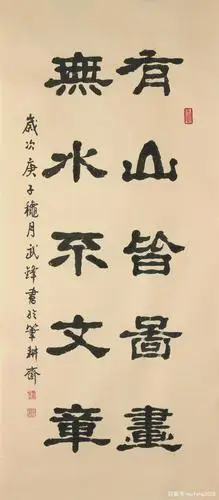 有山皆圖畫
無水不文章
歲次庚子穐月武鋒書於筆耕齋